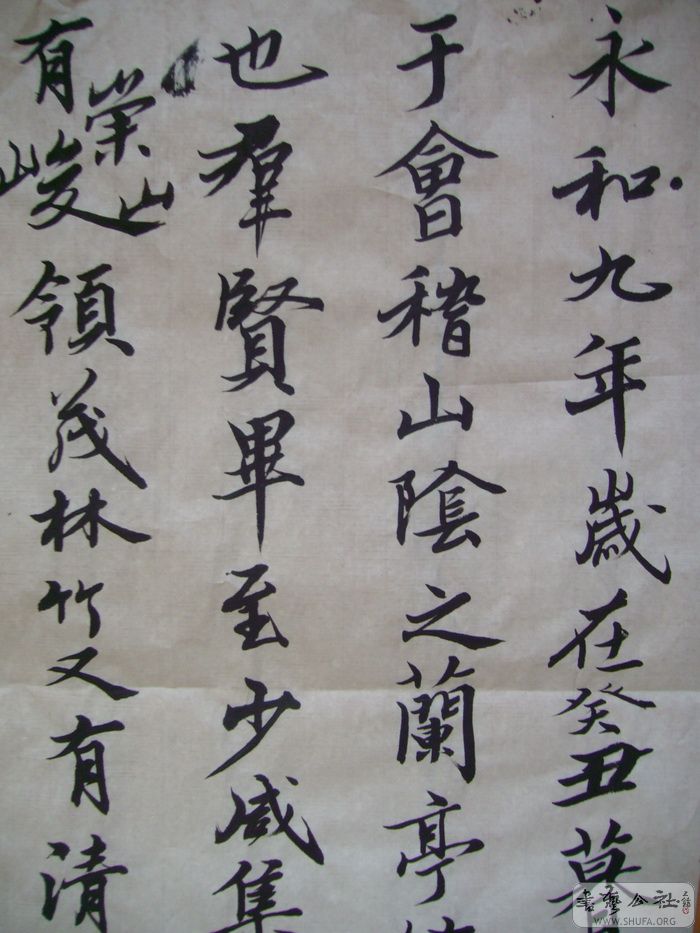 永和九年歲在癸丑暮
于會稽山陰之蘭亭
也羣賢畢至少咸集
有崇山峻領茂林竹又有清
書藝公社
WWW.SHUFA.ORG